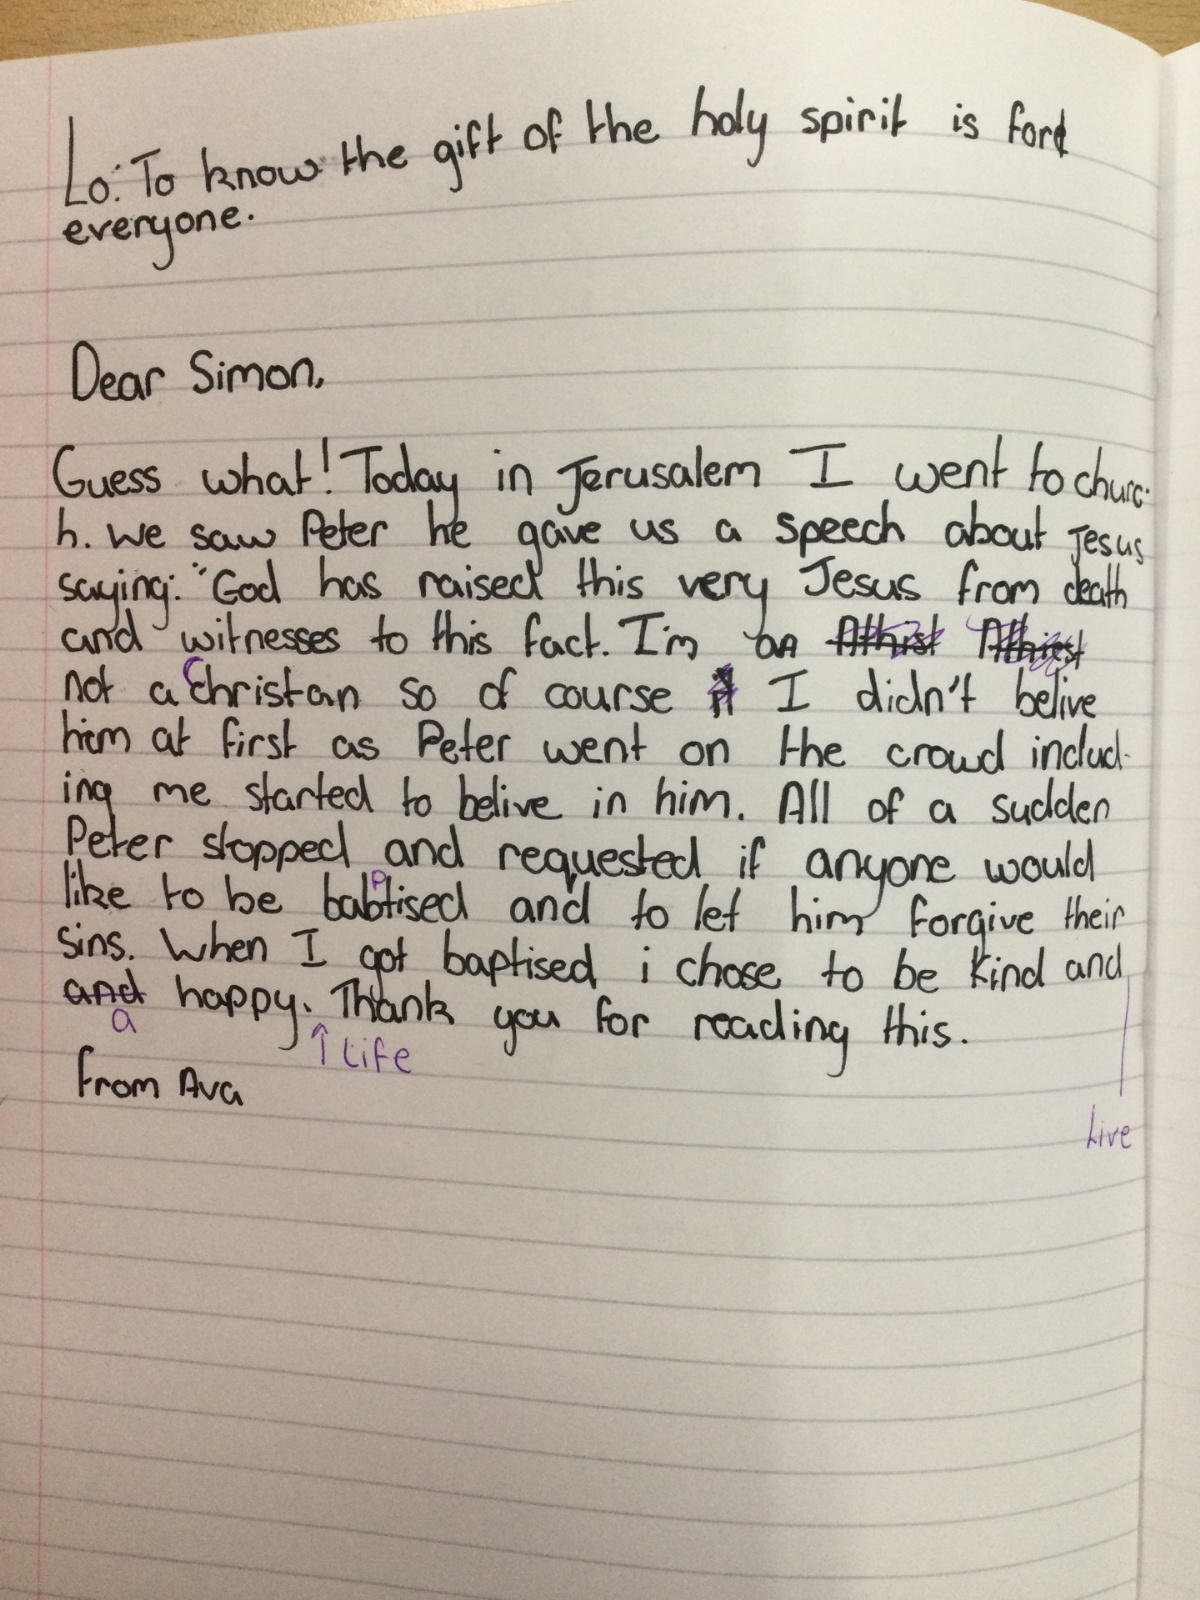 Lo: To know the gift of the holy spirit is for
everyone.
Dear Simon,
Guess what! Today in Jerusalem I went to churc-
h. We saw Peter he gave us a speech about Jesus
saying: "God has raised this very Jesus from death
and witnesses to this fact. I'm an Athist Athiest
not a Christan so of course I didn't belive
him at first as Peter went on the crowd includ-
ing me started to belive in him. All of a sudden
Peter stopped and requested if anyone would
like to be baptised and to let him forgive their
sins. When I got baptised i chose to be kind and
and happy. Thank you for reading this.
a
↑ Life
From Ava
Live